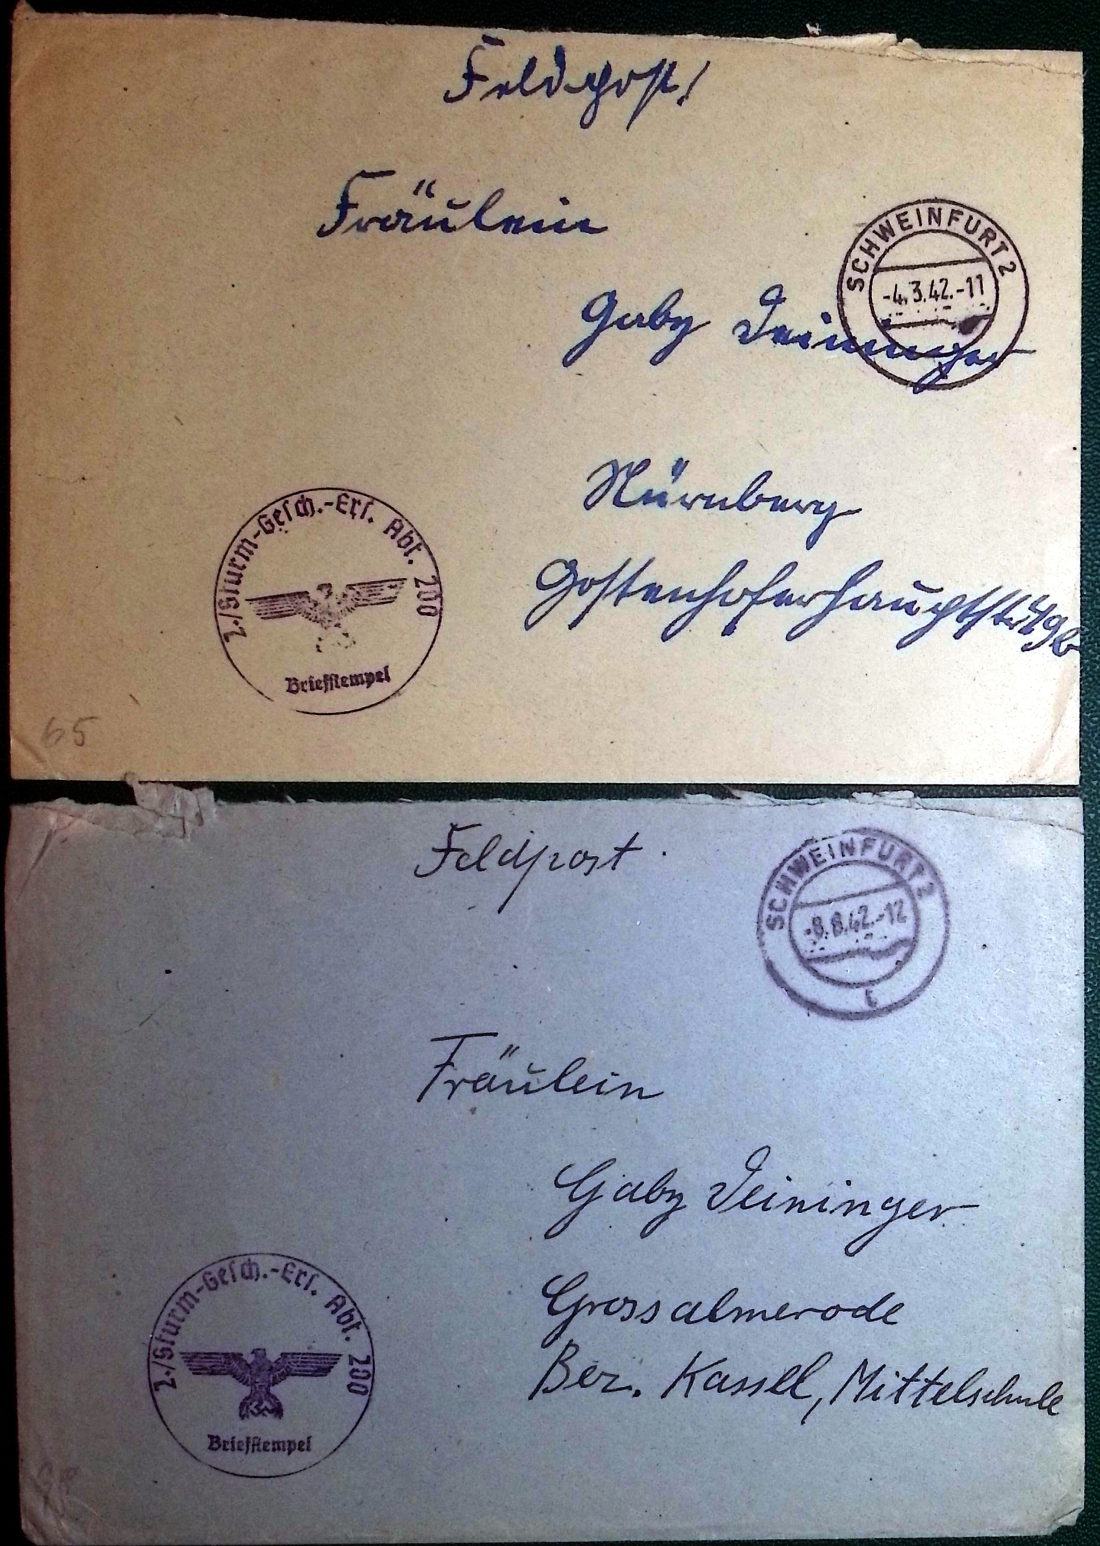 Feldpost!
Fräulein
SCHWEINFURT 2
-4.3.42.-11
Gaby Deininger
Nürnberg
Gostenhoferhauptstr.
2./Sturm-Gesch.-Ers. Abt. 200
Briefstempel
65
Feldpost
SCHWEINFURT 2
-8.8.42.-12
Fräulein
Gaby Deininger
Grossalmerode
Bez. Kassel, Mittelschule
2./Sturm-Gesch.-Ers. Abt. 200
Briefstempel